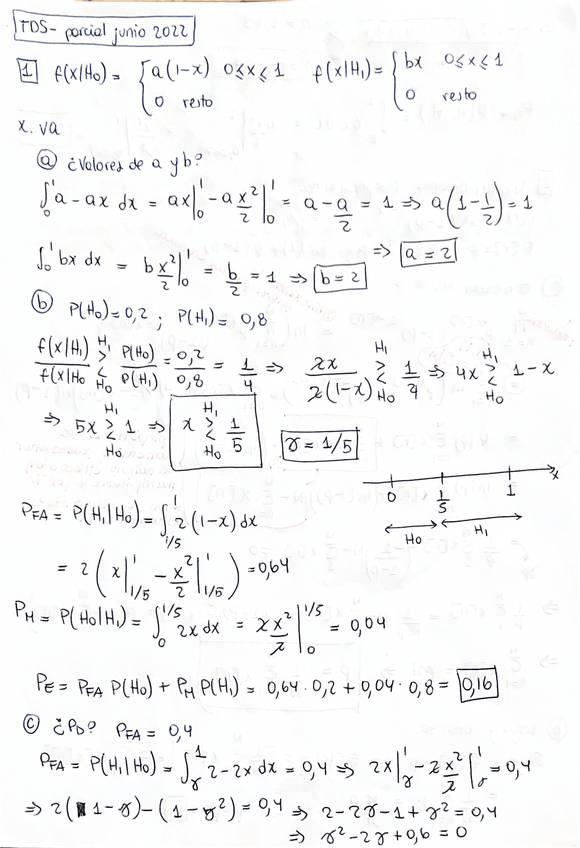 TDS - parcial junio 2022
1 f(x|H0) = { a(1-x) 0≤x≤1 f(x|H1) = { bx 0≤x≤1
0 resto 0 resto
x. va
a) ¿Valores de a y b?
∫₀¹ a - ax dx = ax|₀¹ - a x²/2|₀¹ = a - a/2 = 1 ⇒ a(1 - 1/2) = 1
⇒ a = 2
∫₀¹ bx dx = b x²/2|₀¹ = b/2 = 1 ⇒ b = 2
b) P(H0) = 0,2 ; P(H1) = 0,8
f(x|H1)/f(x|H0 H1 ≷ H0 P(H0)/P(H1) = 0,2/0,8 = 1/4 ⇒ 2x/2(1-x) H1 ≷ H0 1/4 ⇒ 4x H1 ≷ H0 1-x
⇒ 5x H1 ≷ H0 1 ⇒ x H1 ≷ H0 1/5 γ = 1/5
0 1/5 1 x
H0 H1
PFA = P(H1|H0) = ∫_{1/5}^1 2(1-x) dx
= 2(x|_{1/5}^1 - x²/2|_{1/5}^1) = 0,64
PM = P(H0|H1) = ∫₀^{1/5} 2x dx = 2x²/2|₀^{1/5} = 0,04
PE = PFA P(H0) + PM P(H1) = 0,64·0,2 + 0,04·0,8 = 0,16
c) ¿PD? PFA = 0,4
PFA = P(H1|H0) = ∫_γ^1 2-2x dx = 0,4 ⇒ 2x|_γ^1 - 2x²/2|_γ^1 = 0,4
⇒ 2(1-γ) - (1-γ²) = 0,4 ⇒ 2 - 2γ - 1 + γ² = 0,4
⇒ γ² - 2γ + 0,6 = 0